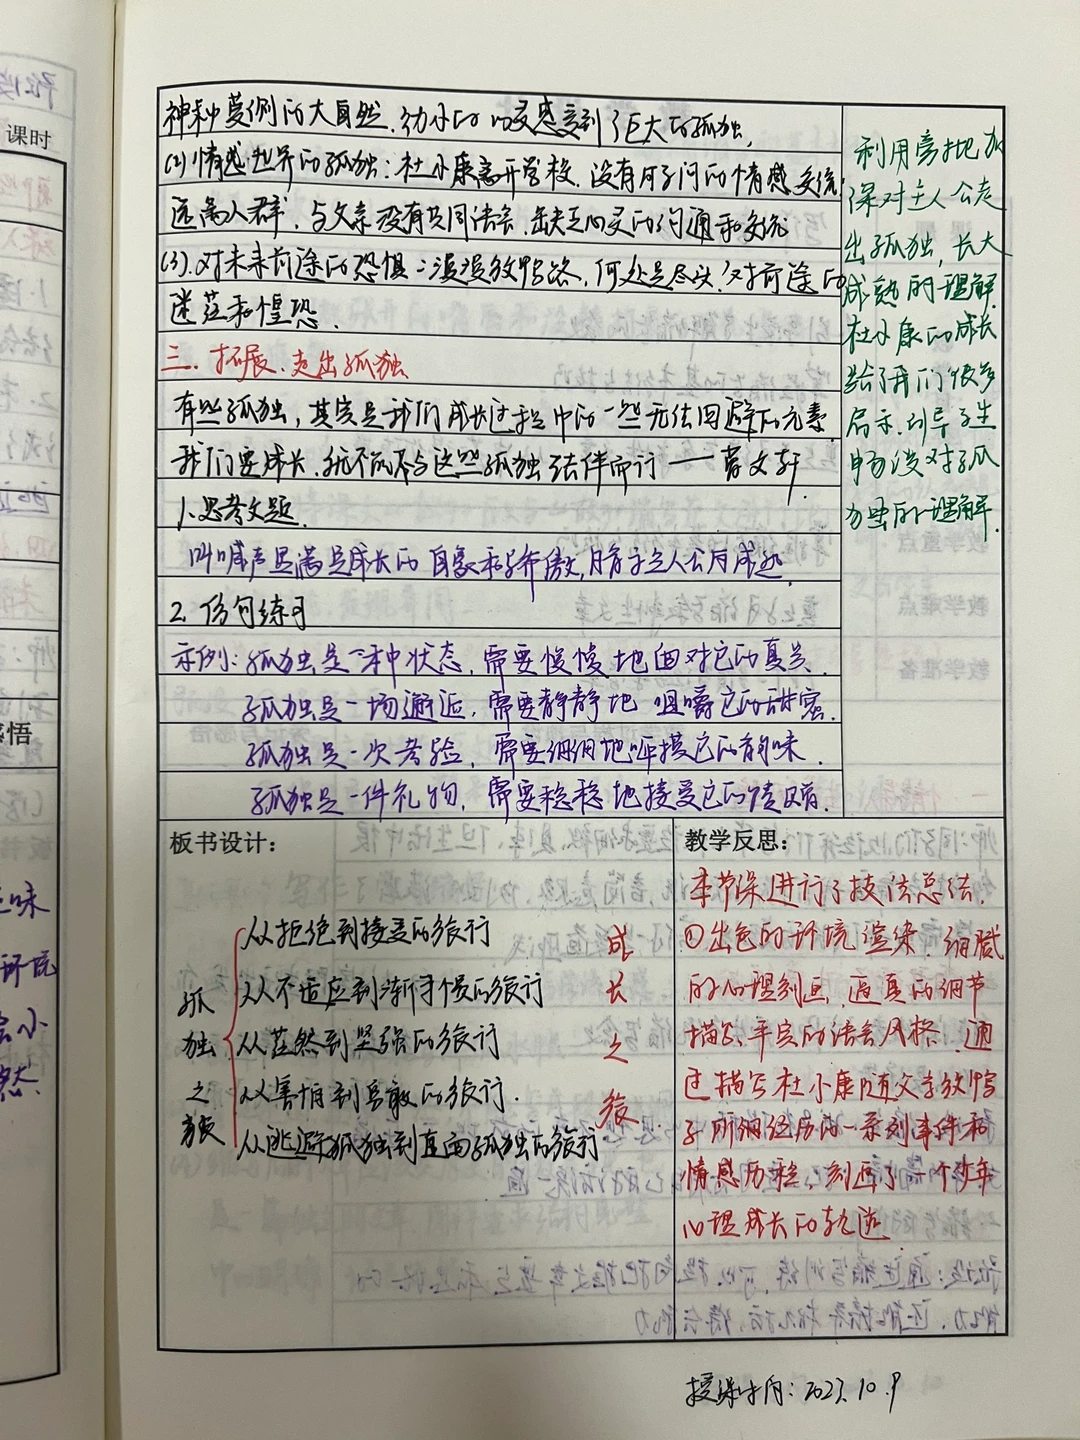 课时
感悟
神秘莫测的大自然,幼小的心灵感受到了巨大的孤独,
(2)情感世界的孤独:杜小康离开学校,没有同学间的情感交流
远离人群,与父亲没有共同语言,缺乏心灵的沟通和交流
(3).对未来前途的恐惧:漫漫放鸭路,何处是尽头!对前途的
迷茫和惶恐.
三.拓展、走出孤独
有些孤独,其实是我们成长过程中的一些无法回避的元素.
我们要成长,就不能不与这些孤独结伴而行——曹文轩.
1.思考文题.
叫喊声里满是成长的自豪和骄傲,
2.仿句练习
示例:孤独是一种状态,需要慢慢地面对它的真实.
孤独是一场邂逅,需要静静地咀嚼它的甜蜜.
孤独是一次考验,需要细细地咂摸它的韵味.
孤独是一件礼物,需要稳稳地接受它的馈赠.
利用旁批加
深对主人公走
出孤独,长大
成熟的理解.
杜小康的成长
给了我们很多
启示,引导学生
畅谈对孤
独的理解.
板书设计:
孤独之旅
从拒绝到接受的旅行
从不适应到渐习惯的旅行
从茫然到坚强的旅行
从害怕到勇敢的旅行.
从逃避孤独到直面孤独的旅行
成长之旅.
教学反思:
本节课进行了技法总结.
①出色的环境渲染、细腻
的心理刻画、逼真的细节
描写、平实的语言风格.通
过描写杜小康随父亲放鸭
子所经历的一系列事件和
情感历程,刻画了一个少年
心理成长的轨迹
授课时间:2023.10.9